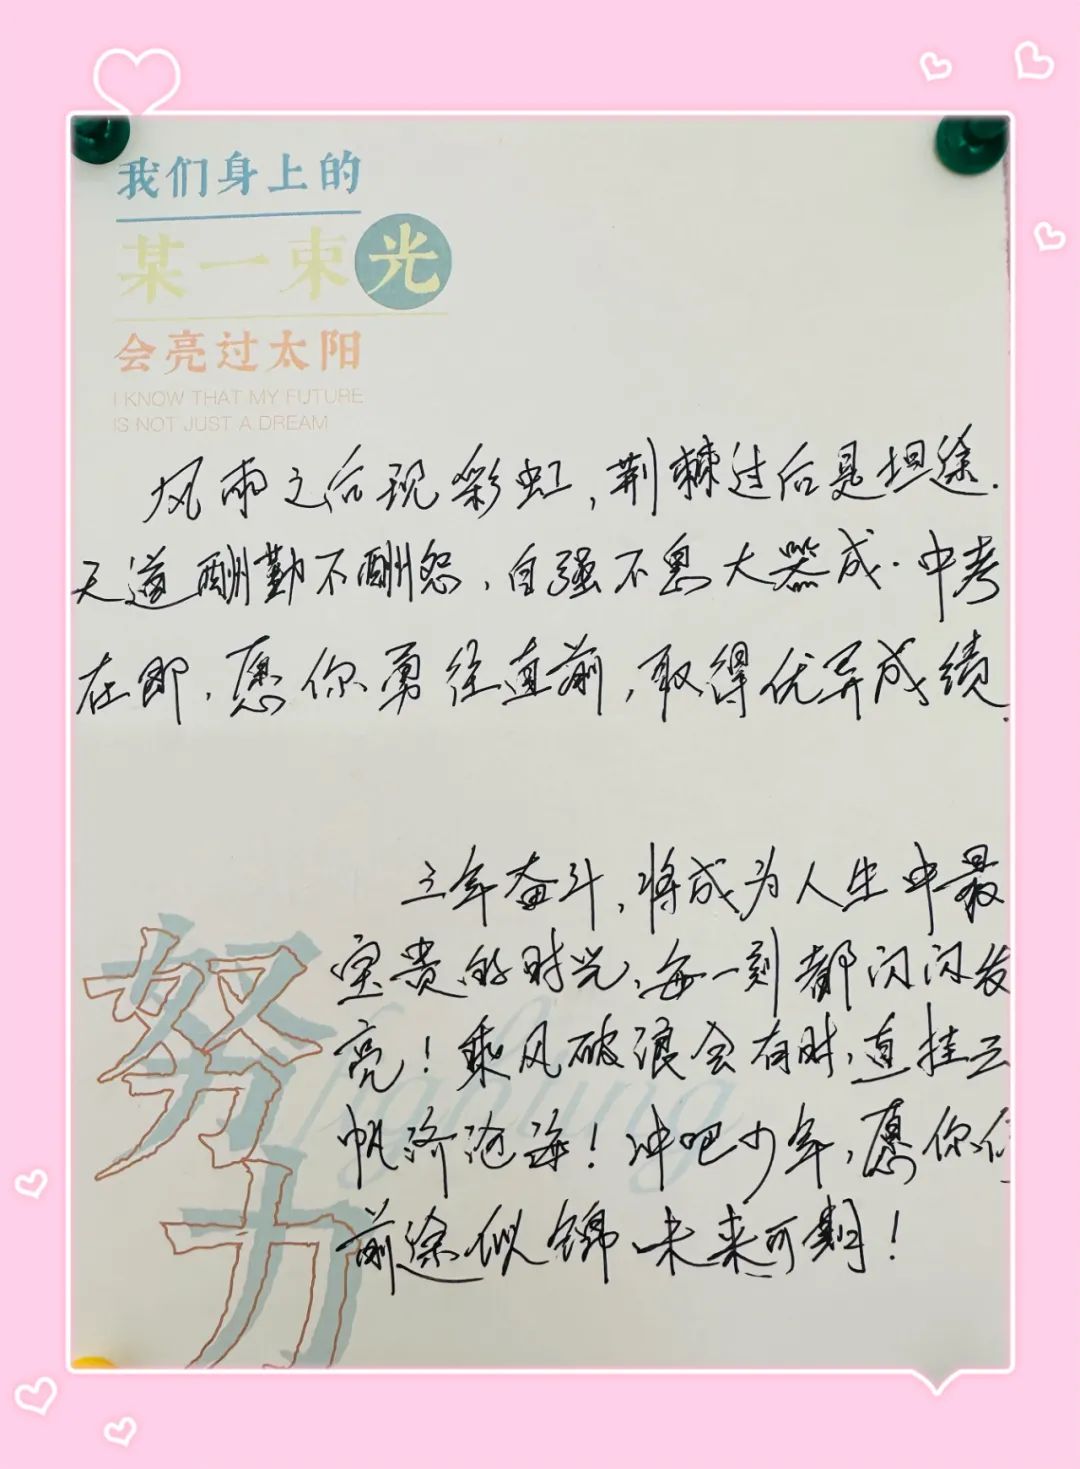 我们身上的
某一束光
会亮过太阳
I KNOW THAT MY FUTURE
IS NOT JUST A DREAM
风雨之后现彩虹,荆棘过后是坦途.
天道酬勤不酬怨,自强不息大器成.中考
在即,愿你勇往直前,取得优异成绩.
三年奋斗,将成为人生中最
宝贵的时光,每一刻都闪闪发
亮!乘风破浪会有时,直挂云
帆济沧海!冲吧少年,愿你们
前途似锦 未来可期!
努力
fighting